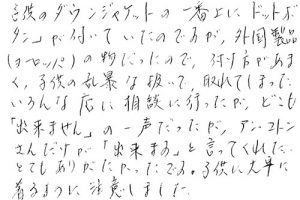 子供のダウンジャケットの一番上に「ドットボ
タン」が付いていたのですが、外国製品
(ヨーロッパ)の物だったので、付け方があま
く、子供の乱暴な扱いで、取れてしまった。
いろんな店に相談に行ったが、どこも
「出来ません」の一声だったが、アン・コトン
さんだけが「出来ます」と言ってくれた。
とてもありがたかったです。子供に大事に
着るように注意しました。